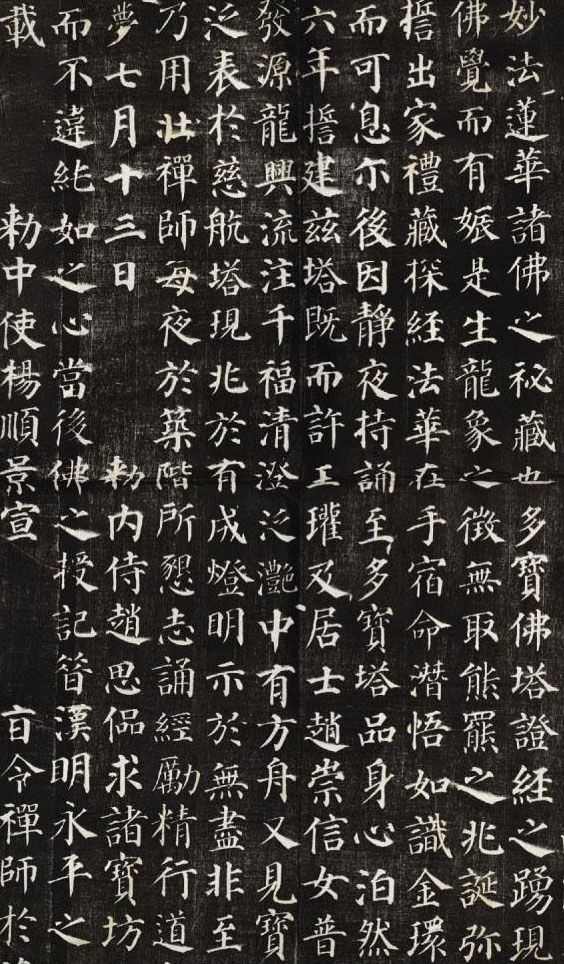 妙法蓮華諸佛之秘藏也多寶佛塔證経之踴現
佛覺而有娠是生龍象之徵無取熊羆之兆誕弥
誓出家禮藏探経法華在手宿命潛悟如識金環
而可息尒後因靜夜持誦至多寶塔品身心泊然
六年誓建兹塔既而許王瓘及居士趙崇信女普
發源龍興流注千福清澄泛灔中有方舟又見寶
泛表於慈航塔現兆於有成燈明示於無盡非至
乃用壯禪師每夜於築階所懇志誦經勵精行道
夢七月十三日 勑内侍趙思偘求諸寶坊
而不違能如之心當後佛之授記昔漢明永平之
載 勑中使楊順景宣 旨令禪師於